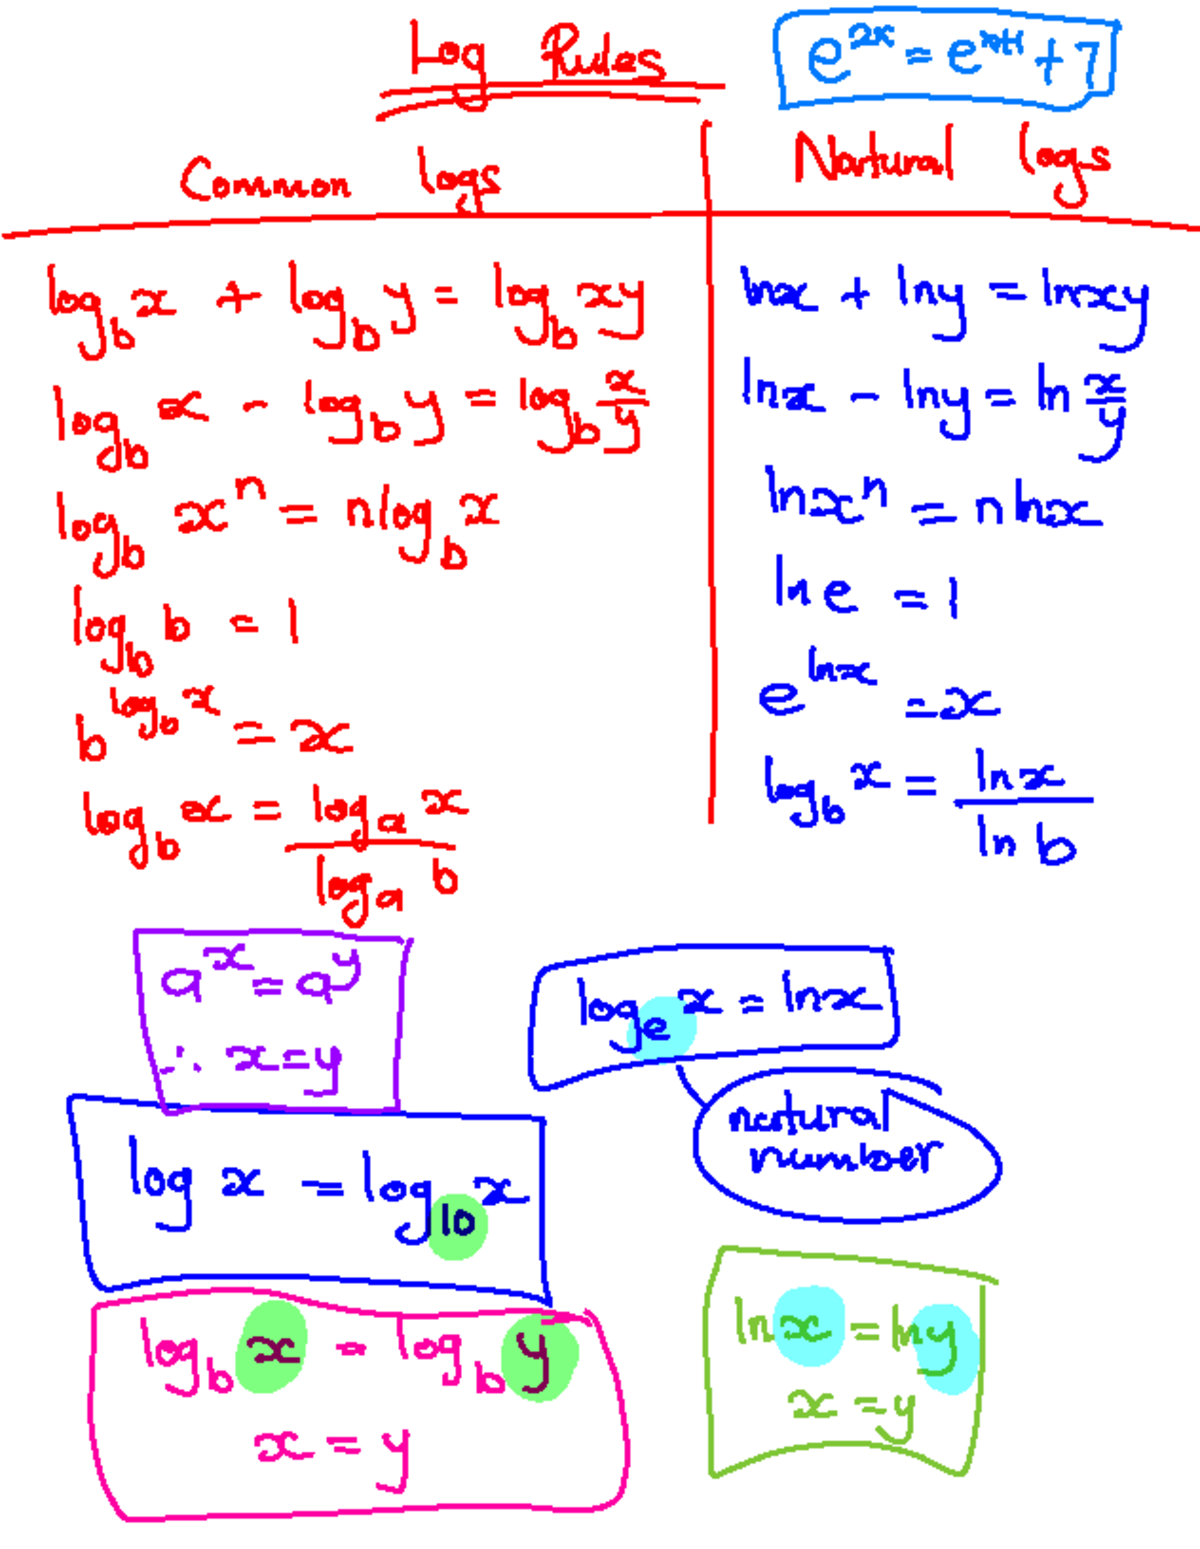 Log Rules
e^{2x} = e^{x+1} + 7
Common logs
Natural logs
log_b x + log_b y = log_b xy
log_b x - log_b y = log_b x/y
log_b x^n = n log_b x
log_b b = 1
b^{log_b x} = x
log_b x = log_a x / log_a b
lnx + lny = lnxy
lnx - lny = ln x/y
lnx^n = n lnx
ln e = 1
e^{lnx} = x
log_b x = lnx / ln b
a^x = a^y
∴ x = y
log_e x = lnx
natural
number
log x = log_10 x
log_b x = log_b y
x = y
lnx = lny
x = y